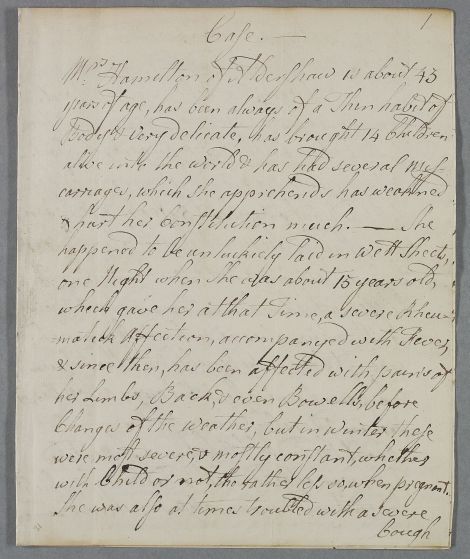 1
Case. —
Mrs Hamilton of Aldershaw is about 43
years of age, has been always of a Thin habit of
Body & very delicate, has brought 14 Children
alive into the world & has had several Mis-
carriages, which she apprehends has weakned
& hurt her constitution much. — She
happened to be unluckiely laid in Wett Sheets,
one Night when She was about 15 years old,
which gave her at that Time, a severe Rheu-
matick Affection, accompanyed with Fever,
& since then, has been affected with pains of
her Limbs, Back, & even Bowells, before
Changes of the weather, but in Winter these
were most severe, & mostly constant, whether
with Child or not, tho rather less so, when pregnant.
She was also at times troubled with a severe
Cough